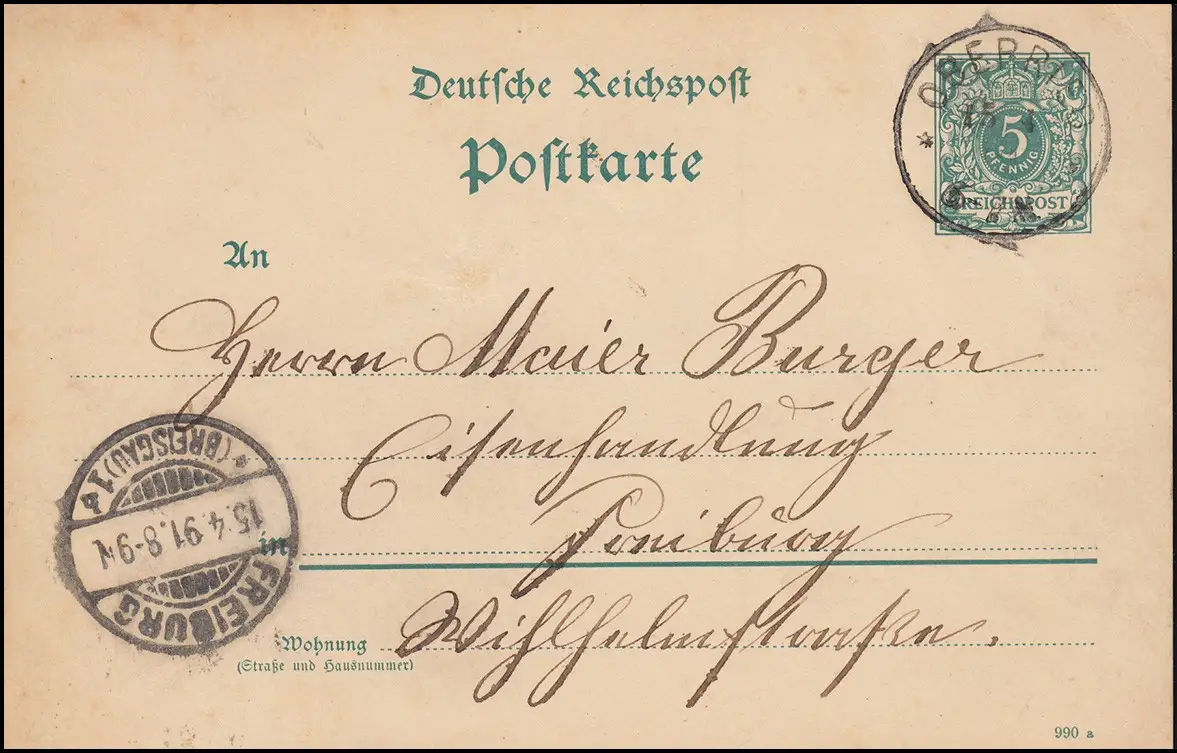 Deutsche Reichspost
Postkarte
15 4
5
PFENNIG
REICHSPOST
An
Herrn Maier Burger
Eisenhandlung
in Freiburg
Wihlhelmstraße.
Wohnung
(Straße und Hausnummer)
FREIBURG
15.4.91.8-9N
* (BREISGAU) 1 b
990 a